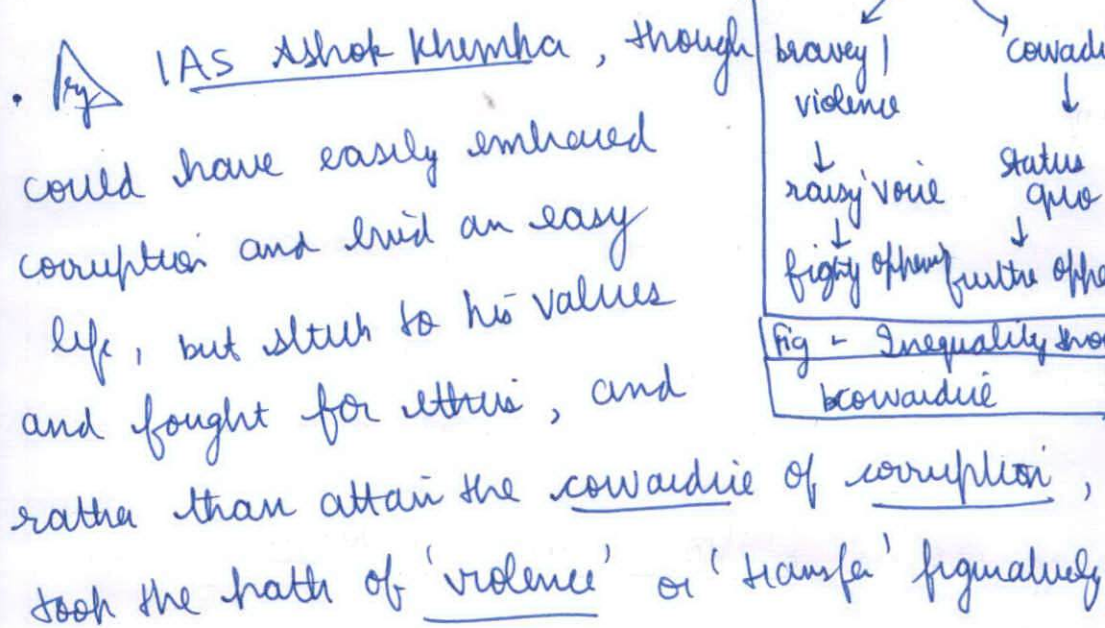 Eg IAS Ashok Khemka, though
could have easily embraced
corruption and lived an easy
life, but stuck to his values
and fought for ethics, and
rather than attain the cowardice of corruption,
took the path of 'violence' or 'transfer' figuratively
bravery / cowardi
violence
↓ ↓
raisg voice status quo
↓ ↓
fightg oppress further oppre
Fig - Inequality thro
cowardice